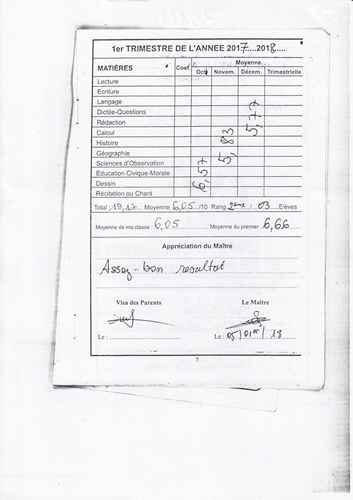 1er TRIMESTRE DE L'ANNEE 2017....2018....
MATIÈRES Coef. Moyenne
Oct. Novem. Décem. Trimestrielle
Lecture
Ecriture
Langage
Dictée-Questions
Rédaction
Calcul
Histoire
Géographie
Sciences d'Observation
Education Civique-Morale
Dessin
Récitation ou Chant
6,57 5,83 5,77
Total : 19,17.. Moyenne 6,05 /10 Rang 2ème / 03 Elèves
Moyenne de ma classe : 6,05 Moyenne du premier 6,66
Appréciation du Maître
Assez-bon resultat
Visa des Parents Le Maître
Le : Le : 05/01er/18
7